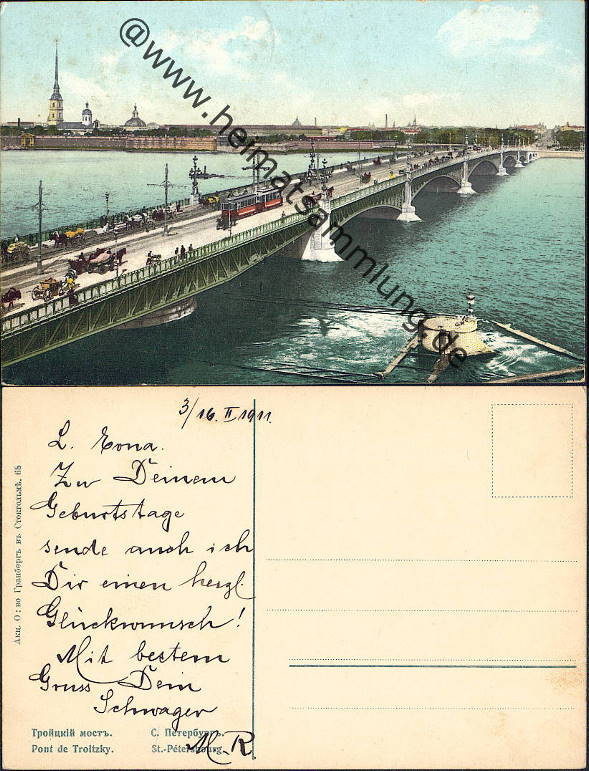 @www.heimatsammlung.de
3/16. II 1911.
L. Erna.
Zu Deinem
Geburtstage
sende auch ich
Dir einen herzl.
Glückwunsch!
Mit bestem
Gruss Dein
Schwager
M. R
Акц. О:во Гранбергъ въ Стокгольмѣ, 615
Троицкій мостъ. С. Петербургъ.
Pont de Troïtzky. St.-Pétersbourg.